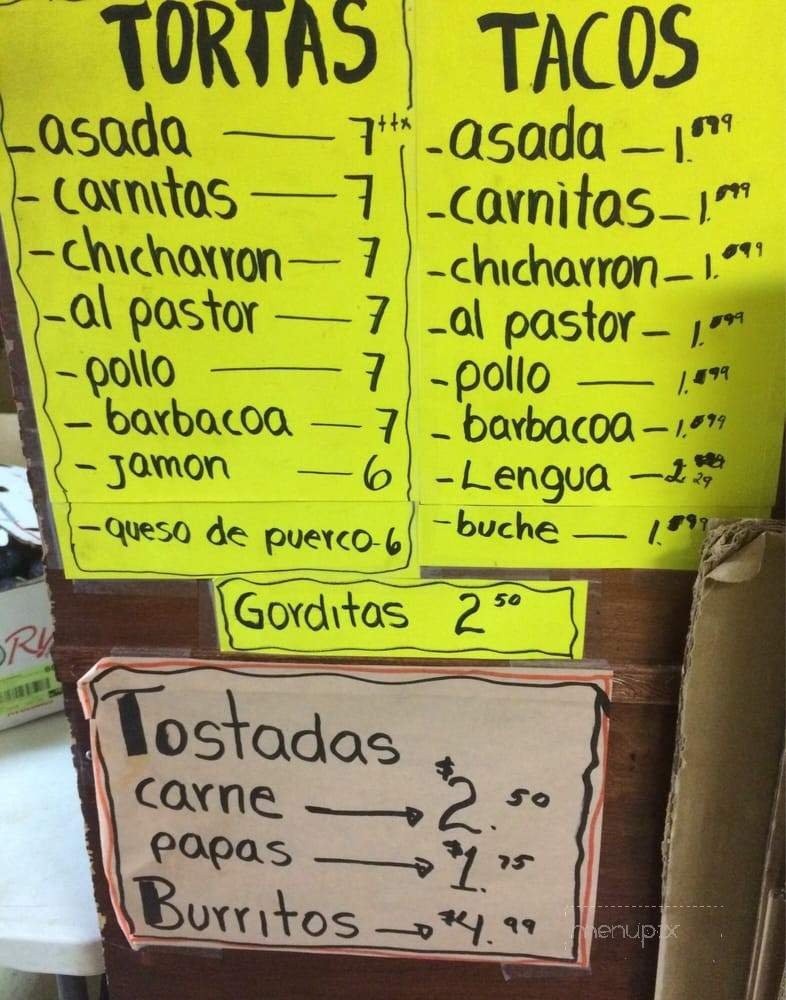 TORTAS
- asada — 7 ++x
- carnitas — 7
- chicharron — 7
- al pastor — 7
- pollo — 7
- barbacoa — 7
- jamon — 6
- queso de puerco - 6
TACOS
- asada — 1.99
- carnitas — 1.99
- chicharron — 1.99
- al pastor — 1.99
- pollo — 1.99
- barbacoa — 1.99
- Lengua — 2.29
- buche — 1.99
Gorditas 2 50
Tostadas
carne → $2.50
papas → $1.75
Burritos → $4.99
menupix